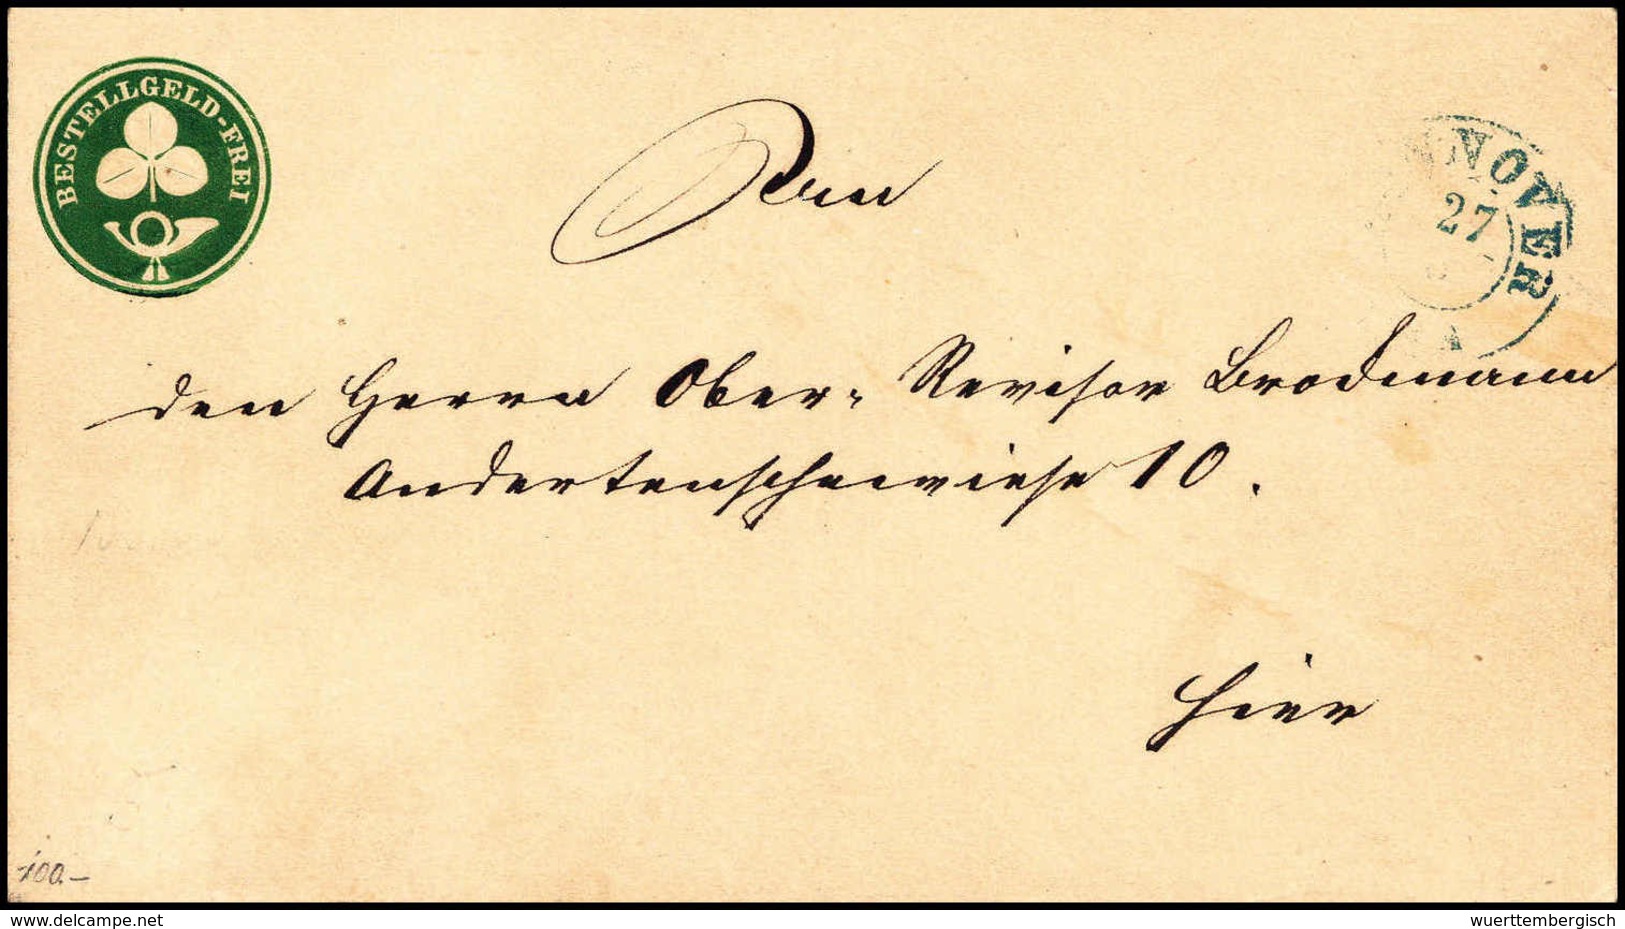 BESTELLGELD-FREI
NNOVER
27
A
An
den Herrn Ober-Revisor Brodmann
Andertenschewiese 10.
hier
100.-
www.delcampe.net
wuerttembergisch